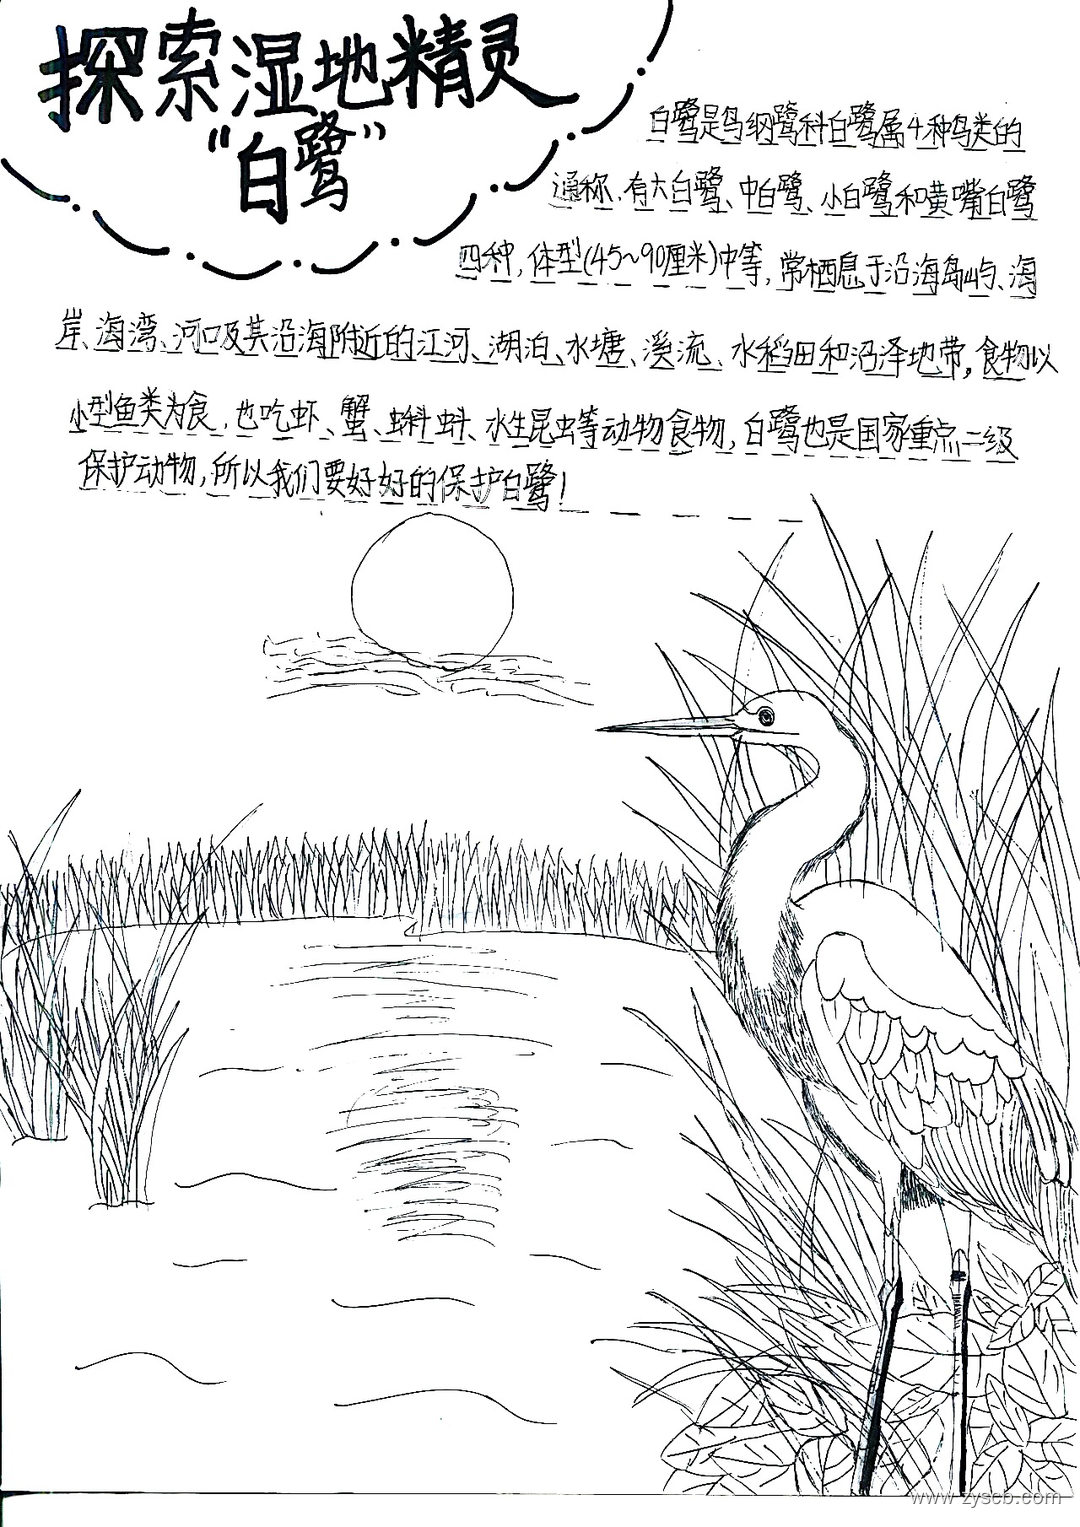 探索湿地精灵
“白鹭”
白鹭是鸟纲鹭科白鹭属4种鸟类的
通称,有大白鹭、中白鹭、小白鹭和黄嘴白鹭
四种,体型(45~90厘米)中等,常栖息于沿海岛屿、海
岸、海湾、河口及其沿海附近的江河、湖泊、水塘、溪流、水稻田和沼泽地带,食物以
小型鱼类为食,也吃虾、蟹、蝌蚪、水生昆虫等动物食物,白鹭也是国家重点二级
保护动物,所以我们要好好的保护白鹭!
www.zyscb.com